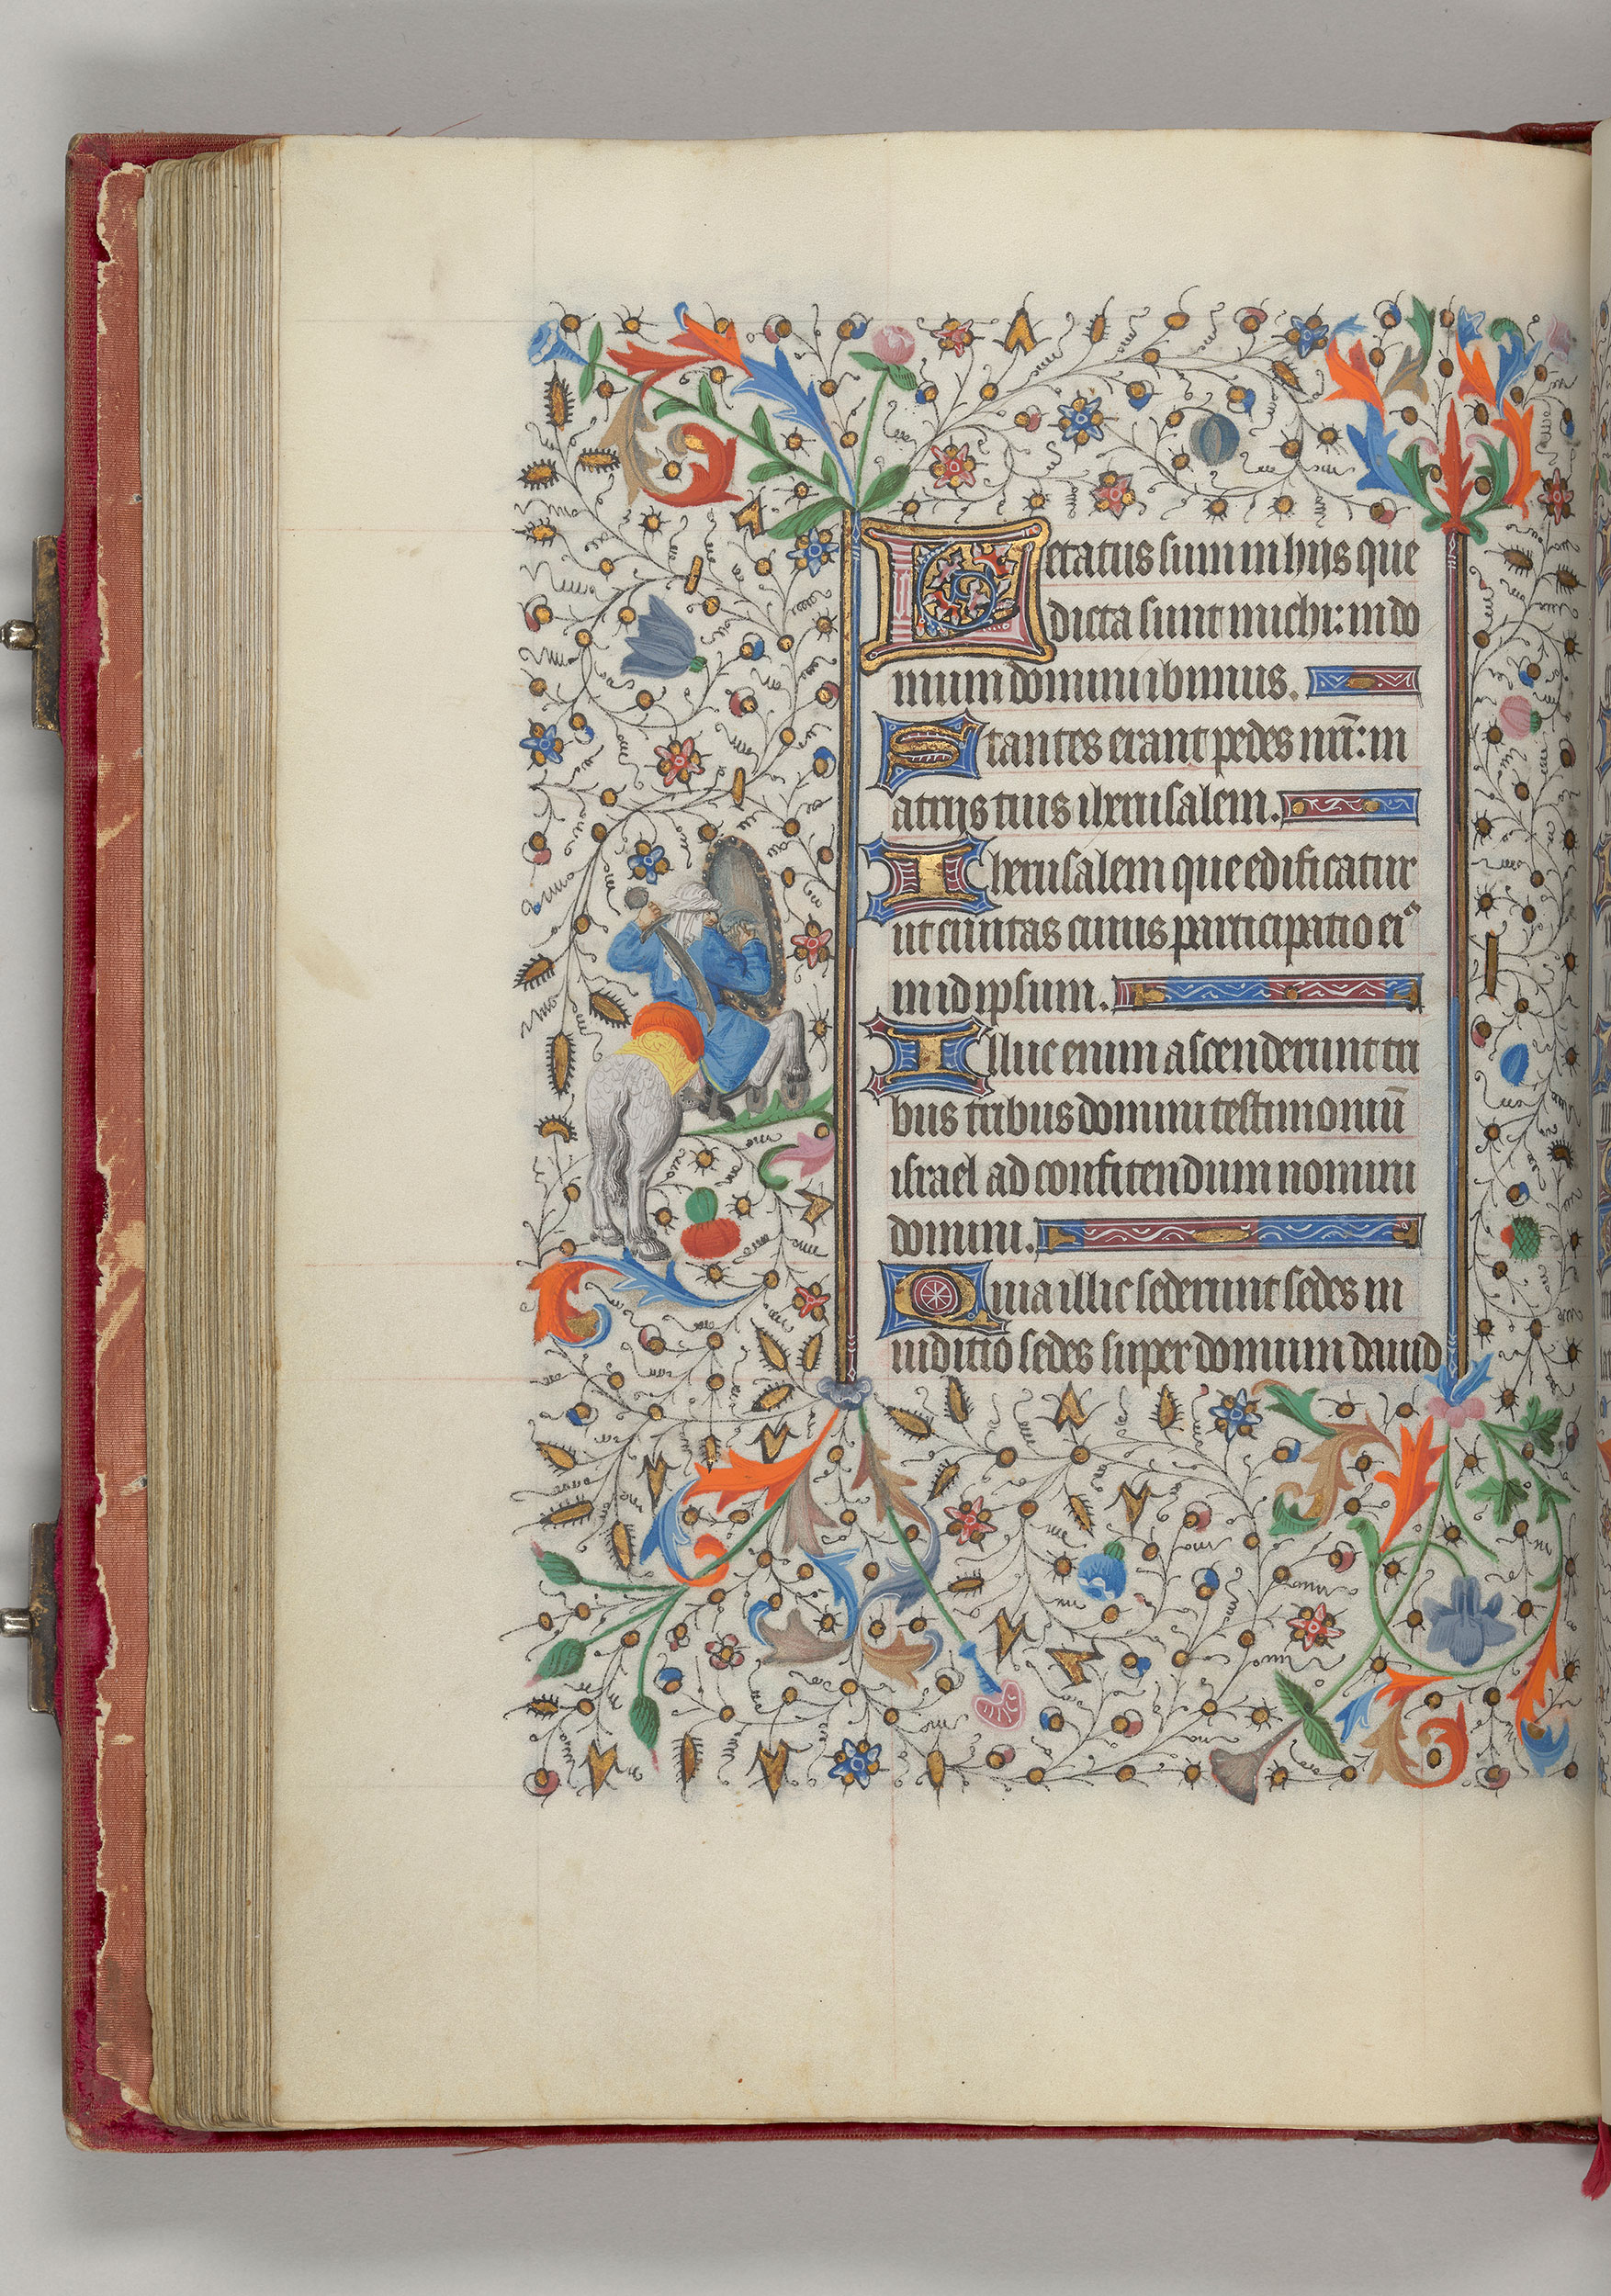 Letatus sum in hiis que
dicta sunt michi: in do
mum domini ibimus.
Stantes erant pedes nr̄i: in
atriis tuis iherusalem.
Iherusalem que edificatur
ut ciuitas cuius participatio eiꝰ
in idipsum.
Illuc enim ascenderunt tri
bus tribus domini testimoniū
israel ad confitendum nomini
domini.
Quia illic sederunt sedes in
iuditio sedes super domum dauid